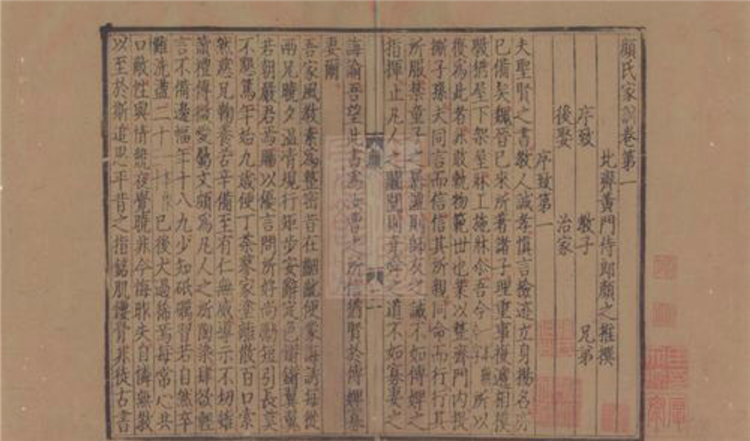 顏氏家訓卷第一
北齊黃門侍郎顏之推撰
序致 教子 兄弟
後娶 治家
序致第一
夫聖賢之書教人誠孝慎言檢迹立身揚名亦
已備矣魏晉已來所著諸子理重事複遞相
斆猶屋下架屋牀上施牀尒吾今所以
復為此者非敢軌物範世也業以整齊門內提
撕子孫夫同言而信信其所親同命而行行其
所服禁童子之暴謔則師友之誡不如傅婢之
指揮止凡人之鬬鬩則堯舜之道不如寡妻之
誨諭吾望此書為汝曹之所信猶賢於傅婢寡
妻爾
吾家風教素為整密昔在齠齔便蒙誨誘每從
兩兄曉夕溫凊規行矩步安辭定色鏘鏘翼翼
若朝嚴君焉賜以優言問所好尚勵短引長莫
不懇篤年始九歲便丁荼蓼家塗離散百口索
然慈兄鞠養苦辛備至有仁無威導示不切雖
讀禮傳微愛屬文頗為凡人之所陶染肆欲輕
言不備邊幅年十八九少知砥礪習若自然卒
難洗盪二十已後大過稀焉每常心共
口敵性與情競夜覺曉非今悔昨失自憐無教
以至於斯追思平昔之指銘肌鏤骨非徒古書